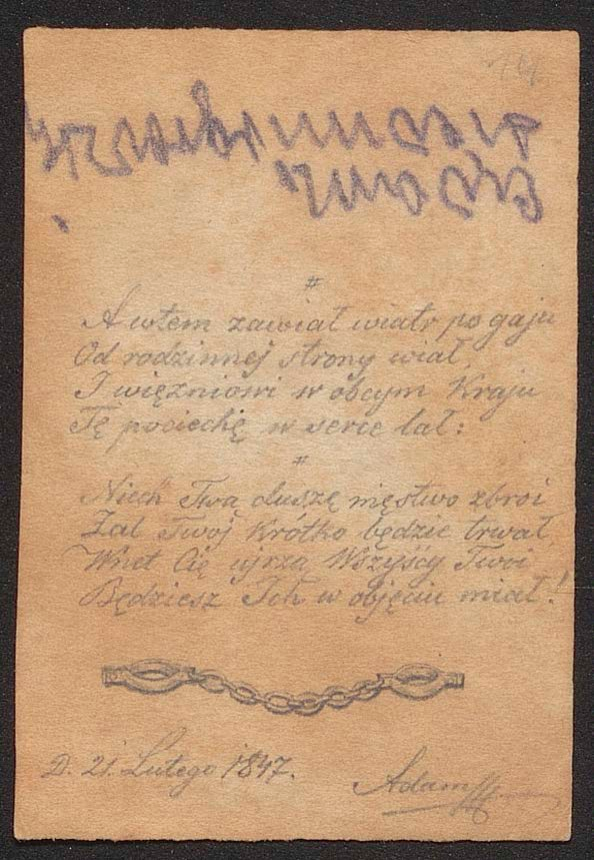 #
A wtem zawiał wiatr po gaju
Od rodzinnej strony wiał,
I więzniowi w obcym Kraju
Tę pociechę w serce lał:
#
Niech Twą duszę męstwo zbroi
Żal Twój krótko będzie trwał,
Wnet Cię ujrzą Wszyścy Twoi
Będziesz Ich w objęciu miał!
D. 21. Lutego 1847.
Adam